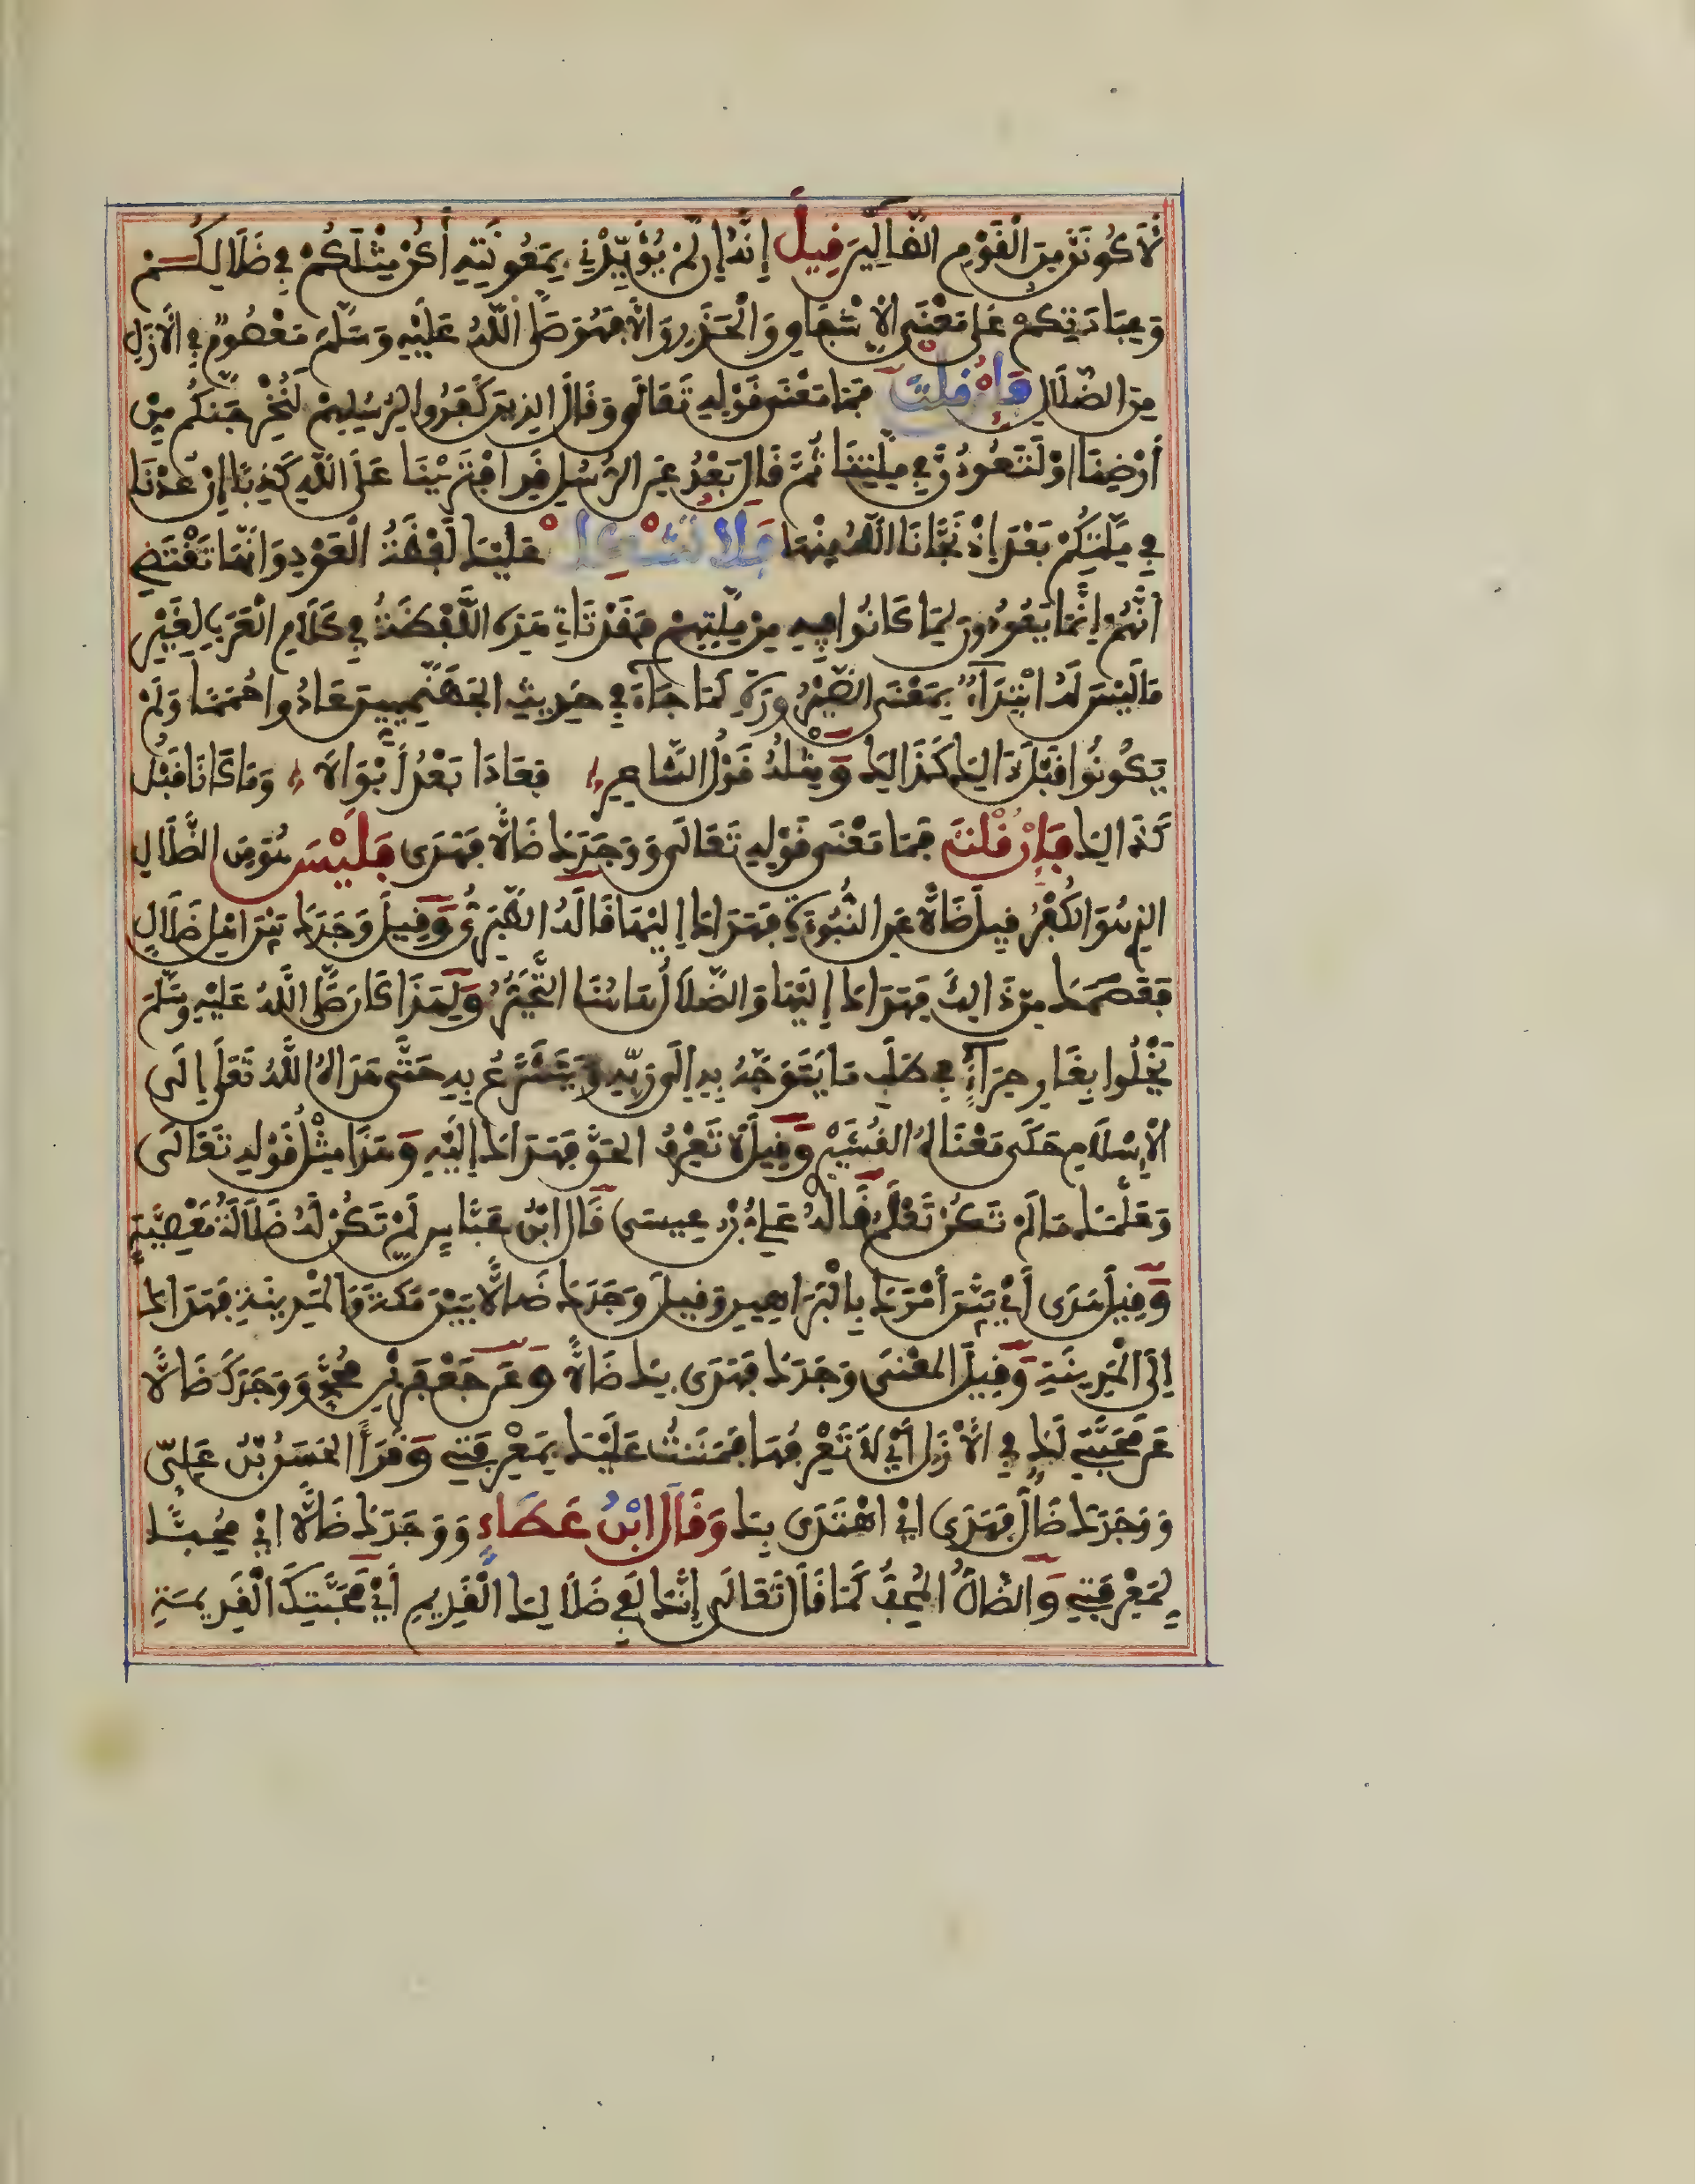 لَأَكُونَنَّ مِنَ الْقَوْمِ الضَّالِّينَ قِيلَ إِنَّهُ إِن لَّمْ يُؤَيِّدْنِي بِمَعُونَتِهِ أَكُنْ مِثْلَكُمْ فِي ضَلَالِكُمْ
وَعِبَادَتِكُمْ عَلَى مَعْنَى الْإِشْفَاقِ وَالْحَذَرِ وَإِلَّا فَهُوَ صَلَّى اللَّهُ عَلَيْهِ وَسَلَّمَ مَعْصُومٌ فِي الْأَزَلِ
مِنَ الضَّلَالِ فَإِنْ قُلْتَ فَمَا مَعْنَى قَوْلِهِ تَعَالَى وَقَالَ الذِينَ كَفَرُوا لِرُسُلِهِمْ لَنُخْرِجَنَّكُم مِنْ
أَرْضِنَا اوْ لَتَعُودُنَّ فِي مِلَّتِنَا ثُمَّ قَالَ بَعْدُ عَنِ الرُّسُلِ قَدِ افْتَرَيْنَا عَلَى اللَّهِ كَذِبًا إِنْ عُدْنَا
فِي مِلَّتِكُمْ بَعْدَ إِذْ نَجَّانَا اللَّهُ مِنْهَا فَلَا تُشْكِلْ عَلَيْكَ لَفْظَةُ الْعَوْدِ وَانَّهَا تَقْتَضِي
انَّهُمْ إِنَّمَا يَعُودُونَ لِمَا كَانُوا فِيهِ مِنْ مِلَّتِهِمْ فَقَدْ تَاتِي هَذِهِ اللَّفْظَةُ فِي كَلَامِ الْعَرَبِ لِغَيْرِ
مَا لَيْسَ لَهُ ابْتِدَاءٌ بِمَعْنَى الصَّيْرُورَةِ كَمَا جَاءَ فِي حَدِيثِ الجَهَنَّمِيِّينَ عَادُوا حُمَمًا وَلَمْ
يَكُونُوا قَبْلُ كَذَالِكَ وَمِثْلُهُ قَوْلُ الشَّاعِرِ فَعَادَا بَعْدُ أَبْوَالَا وَمَا كَانَا قَبْلُ
كَذَالِكَ فَإِنْ قُلْتَ فَمَا مَعْنَى قَوْلِهِ تَعَالَى وَوَجَدَكَ ضَالًّا فَهَدَى فَلَيْسَ هُوَ مِنَ الضَّلَالِ
الذِي هُوَ الكُفْرُ قِيلَ ضَالًّا عَنِ النُّبُوءَةِ فَهَدَاكَ إِلَيْهَا قَالَهُ الطَّبَرِيُّ وَقِيلَ وَجَدَكَ بَيْنَ اهْلِ ضَلَالٍ
فَعَصَمَكَ مِنْ ذَالِكَ فَهَدَاكَ إِلَيْهَا وَالضَّلَالُ هَاهُنَا التَّحَيُّرُ وَلِهَذَا كَانَ صَلَّى اللَّهُ عَلَيْهِ وَسَلَّمَ
يَخْلُوا بِغَارِ حِرَاءٍ فِي طَلَبِ مَا يَتَوَجَّهُ بِهِ إِلَى رَبِّهِ وَيَتَشَرَّعُ بِهِ حَتَّى هَدَاهُ اللَّهُ تَعَلَى إِلَى
الْإِسْلَامِ حَكَى مَعْنَاهُ القُشَيْرِي وَقِيلَ لَا تَعْرِفُ الحَقَّ فَهَدَاكَ إِلَيْهِ وَهَذَا مِثْلُ قَوْلِهِ تَعَالَى
وَعَلَّمَكَ مَا لَمْ تَكُنْ تَعْلَمُ قَالَهُ عَلِيُّ بْنُ عِيسَى قَالَ ابْنُ عَبَّاسٍ لَمْ تَكُنْ لَهُ ضَلَالَةُ مَعْصِيَةٍ
وَقِيلَ هَدَى أَيْ بَيَّنَ أَمْرَكَ بِالْبَرَاهِينِ وَقِيلَ وَجَدَكَ ضَالًّا بَيْنَ مَكَّةَ وَالْمَدِينَةِ فَهَدَاكَ
إِلَى الْمَدِينَةِ وَقِيلَ المَعْنَى وَجَدَكَ فَهَدَى بِكَ ضَالًّا وَعَنْ جَعْفَرِ بْنِ مُحَمَّدٍ وَوَجَدَكَ ضَالًّا
عَنْ مَحَبَّتِي لَكَ فِي الْأَزَلِ أَيْ لَا تَعْرِفُهَا فَمَنَنْتُ عَلَيْكَ بِمَعْرِفَتِي وَقَرَأَ الحَسَنُ بْنُ عَلِيٍّ
وَوَجَدَكَ ضَالٌّ فَهَدَى أَيْ اهْتَدَى بِكَ وَقَالَ ابْنُ عَطَاءٍ وَوَجَدَكَ ضَالًّا أَيْ مُحِبًّا
لِمَعْرِفَتِي وَالضَّالُّ الْمُحِبُّ كَمَا قَالَ تَعَالَى إِنَّكَ لَفِي ضَلَالِكَ الْقَدِيمِ أَيْ مَحَبَّتِكَ الْقَدِيمَةِ